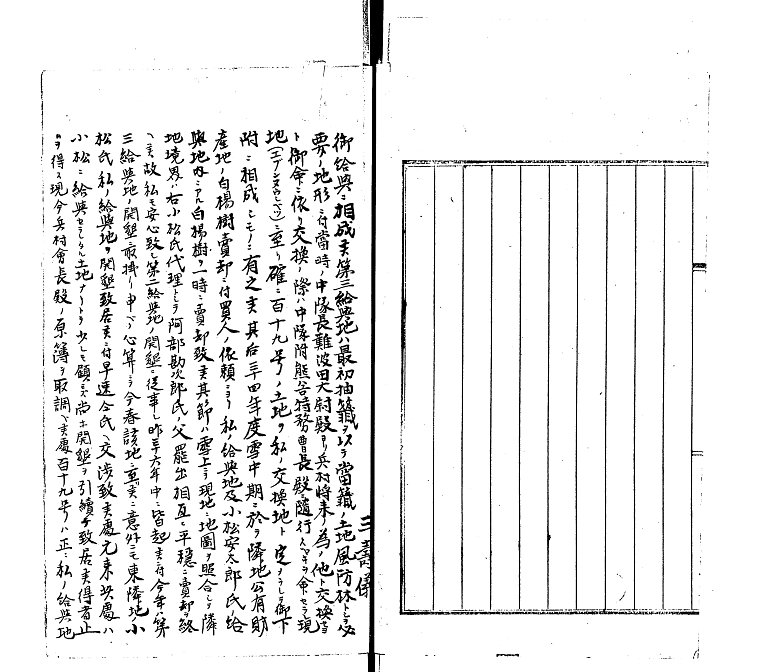 御給與ニ相成候第三給與地ハ最初抽籤ヲ以テ當籤ノ土地風防林トシテ必
要ノ地形ニ付當時ノ中隊長難波田大尉殿ヨリ兵村将来ノ為メ他ト交換
ト御命ニ依リ交換ノ際ハ中隊附熊谷特務曹長殿ニ隨行 命セラレ現
地 ニ至リ確ニ百十九号ノ土地ヲ私ノ交換地ト定メラレ御下
附ニ相成シモノニ有之候其后三四年度雪中期ニ於テ隣地公有財
産地ノ白楊樹賣却ニ付買人ノ依頼ニヨリ私ノ給與地及小松安太郎氏給
與地内ニアル白楊樹ヲ一時ニ賣却致候其節ハ雪上ヲ現地ニ地圖ヲ照合シテ隣
地境界ハ右小松氏代理トシテ阿部勘次郎氏ノ父罷出相互ニ平穏ニ賣却ヲ終
ヘ候故私モ安心致シ第二給與地ノ開墾ニ従事シ昨三十六年中ニ皆起候ニ付今年ハ第
三給與地ノ開墾ニ取掛リ申ベク心算ニテ今春該地ニ至候ニ意外ニモ東隣地ノ小
松氏私ノ給與地ヲ開墾致居候ニ付早速仝氏ヘ交渉致候處元来此處ハ
小松ニ給與セラレタル土地ナリトテ少シモ顧ミズ尚ホ開墾ヲ引續キ致居候得者止
ヲ得ス現今兵村會長殿ノ原簿ヲ取調ヘ候處百十九号ハ正ニ私ノ給與地